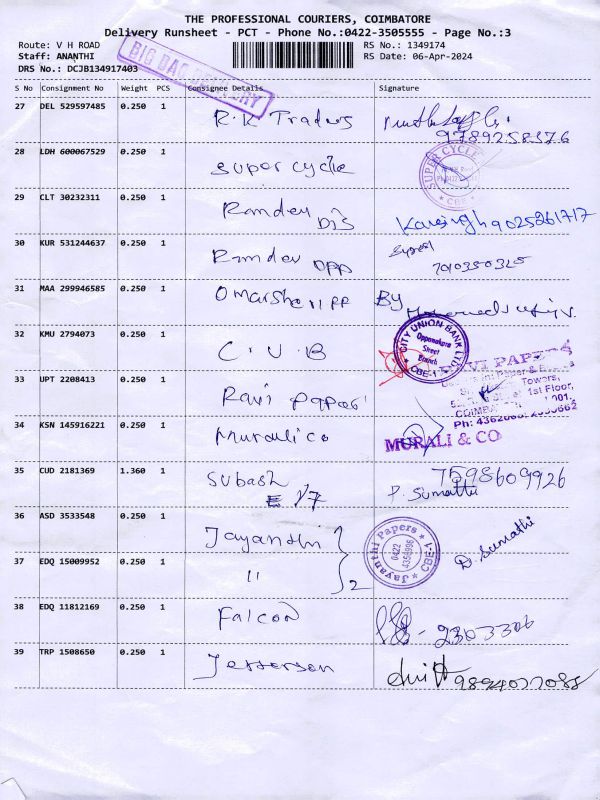 THE PROFESSIONAL COURIERS, COIMBATORE
Delivery Runsheet - PCT - Phone No.:0422-3505555 - Page No.:3
Route: V H ROAD
RS No.: 1349174
Staff: ANANTHI
RS Date: 06-Apr-2024
DRS No.: DCJB134917403
BIG BAG DELIVERY
S No Consignment No Weight PCS Consignee Details Signature
27 DEL 529597485 0.250 1 R.K Traders
9789258376
28 LDH 600067529 0.250 1 Super cycle
SUPER CYCLE
CBE
29 CLT 30232311 0.250 1 Ramdev DJS 9025261717
30 KUR 531244637 0.250 1 Ramdev OPP
7010350325
31 MAA 299946585 0.250 1 Omarshe 11 PP By
32 KMU 2794073 0.250 1 C.U.B
CITY UNION BANK LTD.
Oppanakara
Street
Branch
CBE-1
33 UPT 2208413 0.250 1 Ravi papers
PAPERS
Paper &
Towers,
1st Floor,
COIMBA 001.
Ph:
34 KSN 145916221 0.250 1 Muralico
MURALI & CO
35 CUD 2181369 1.360 1 Subash 7598609926
1/7 P. Sumathi
36 ASD 3533548 0.250 1 Jayanthi
Jayanthi Papers
0422
4358996
CBE-1
D. Sumathi
37 EDQ 15009952 0.250 1 11 2
38 EDQ 11812169 0.250 1 Falcon - 2303306
39 TRP 1508650 0.250 1 Jefferson 9894077088